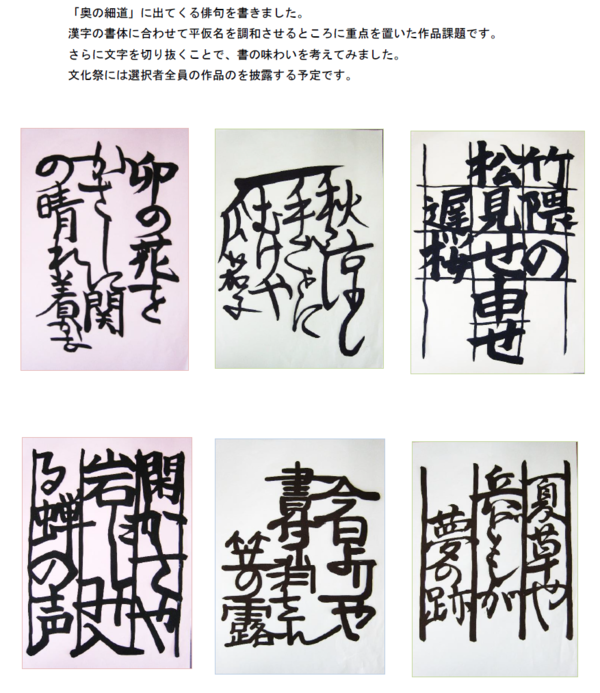 「奥の細道」に出てくる俳句を書きました。
漢字の書体に合わせて平仮名を調和させるところに重点を置いた作品課題です。
さらに文字を切り抜くことで、書の味わいを考えてみました。
文化祭には選択者全員の作品のを披露する予定です。
卯の花を
かざしに関
の晴れ着かな
秋涼し
手ごとに
むけや
瓜茄子
竹隈の
松見せ申せ
遅桜
閑かさや
岩にしみ入
る蝉の声
今日よりや
書付消さん
笠の露
夏草や
兵どもが
夢の跡